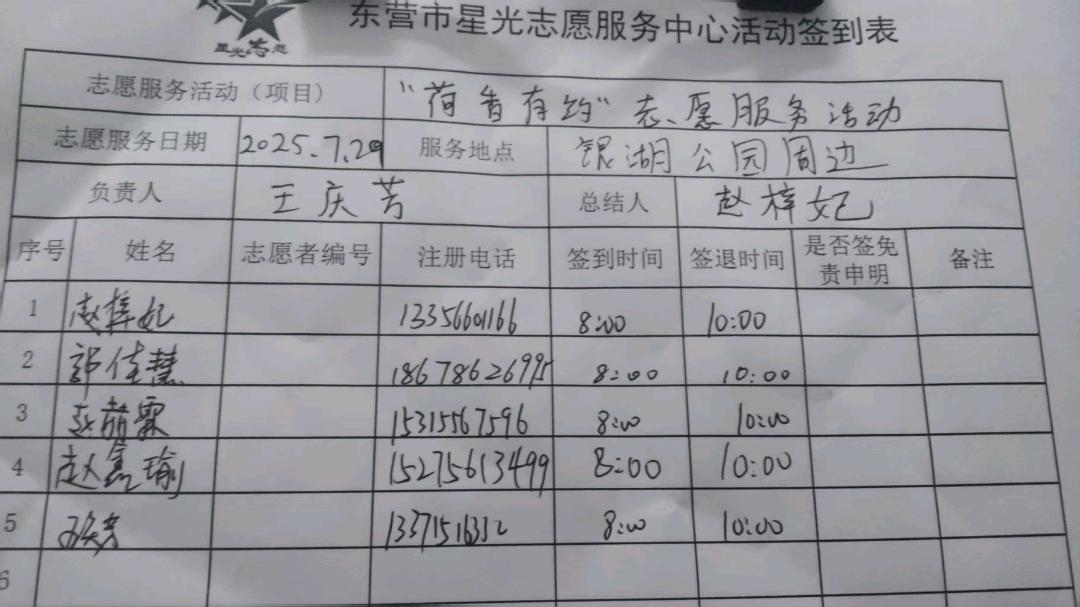 星光志愿
东营市星光志愿服务中心活动签到表
志愿服务活动（项目） “荷香有约”志愿服务活动
志愿服务日期 2025.7.29 服务地点 银湖公园周边
负责人 王庆芳 总结人 赵梓妃
序号 姓名 志愿者编号 注册电话 签到时间 签退时间 是否签免责申明 备注
1 赵梓妃 13356601166 8:00 10:00
2 郭佳慧 18678626995 8:00 10:00
3 赵萌霖 15315567596 8:00 10:00
4 赵鑫瑜 15275613499 8:00 10:00
5 8:00 10:00
6